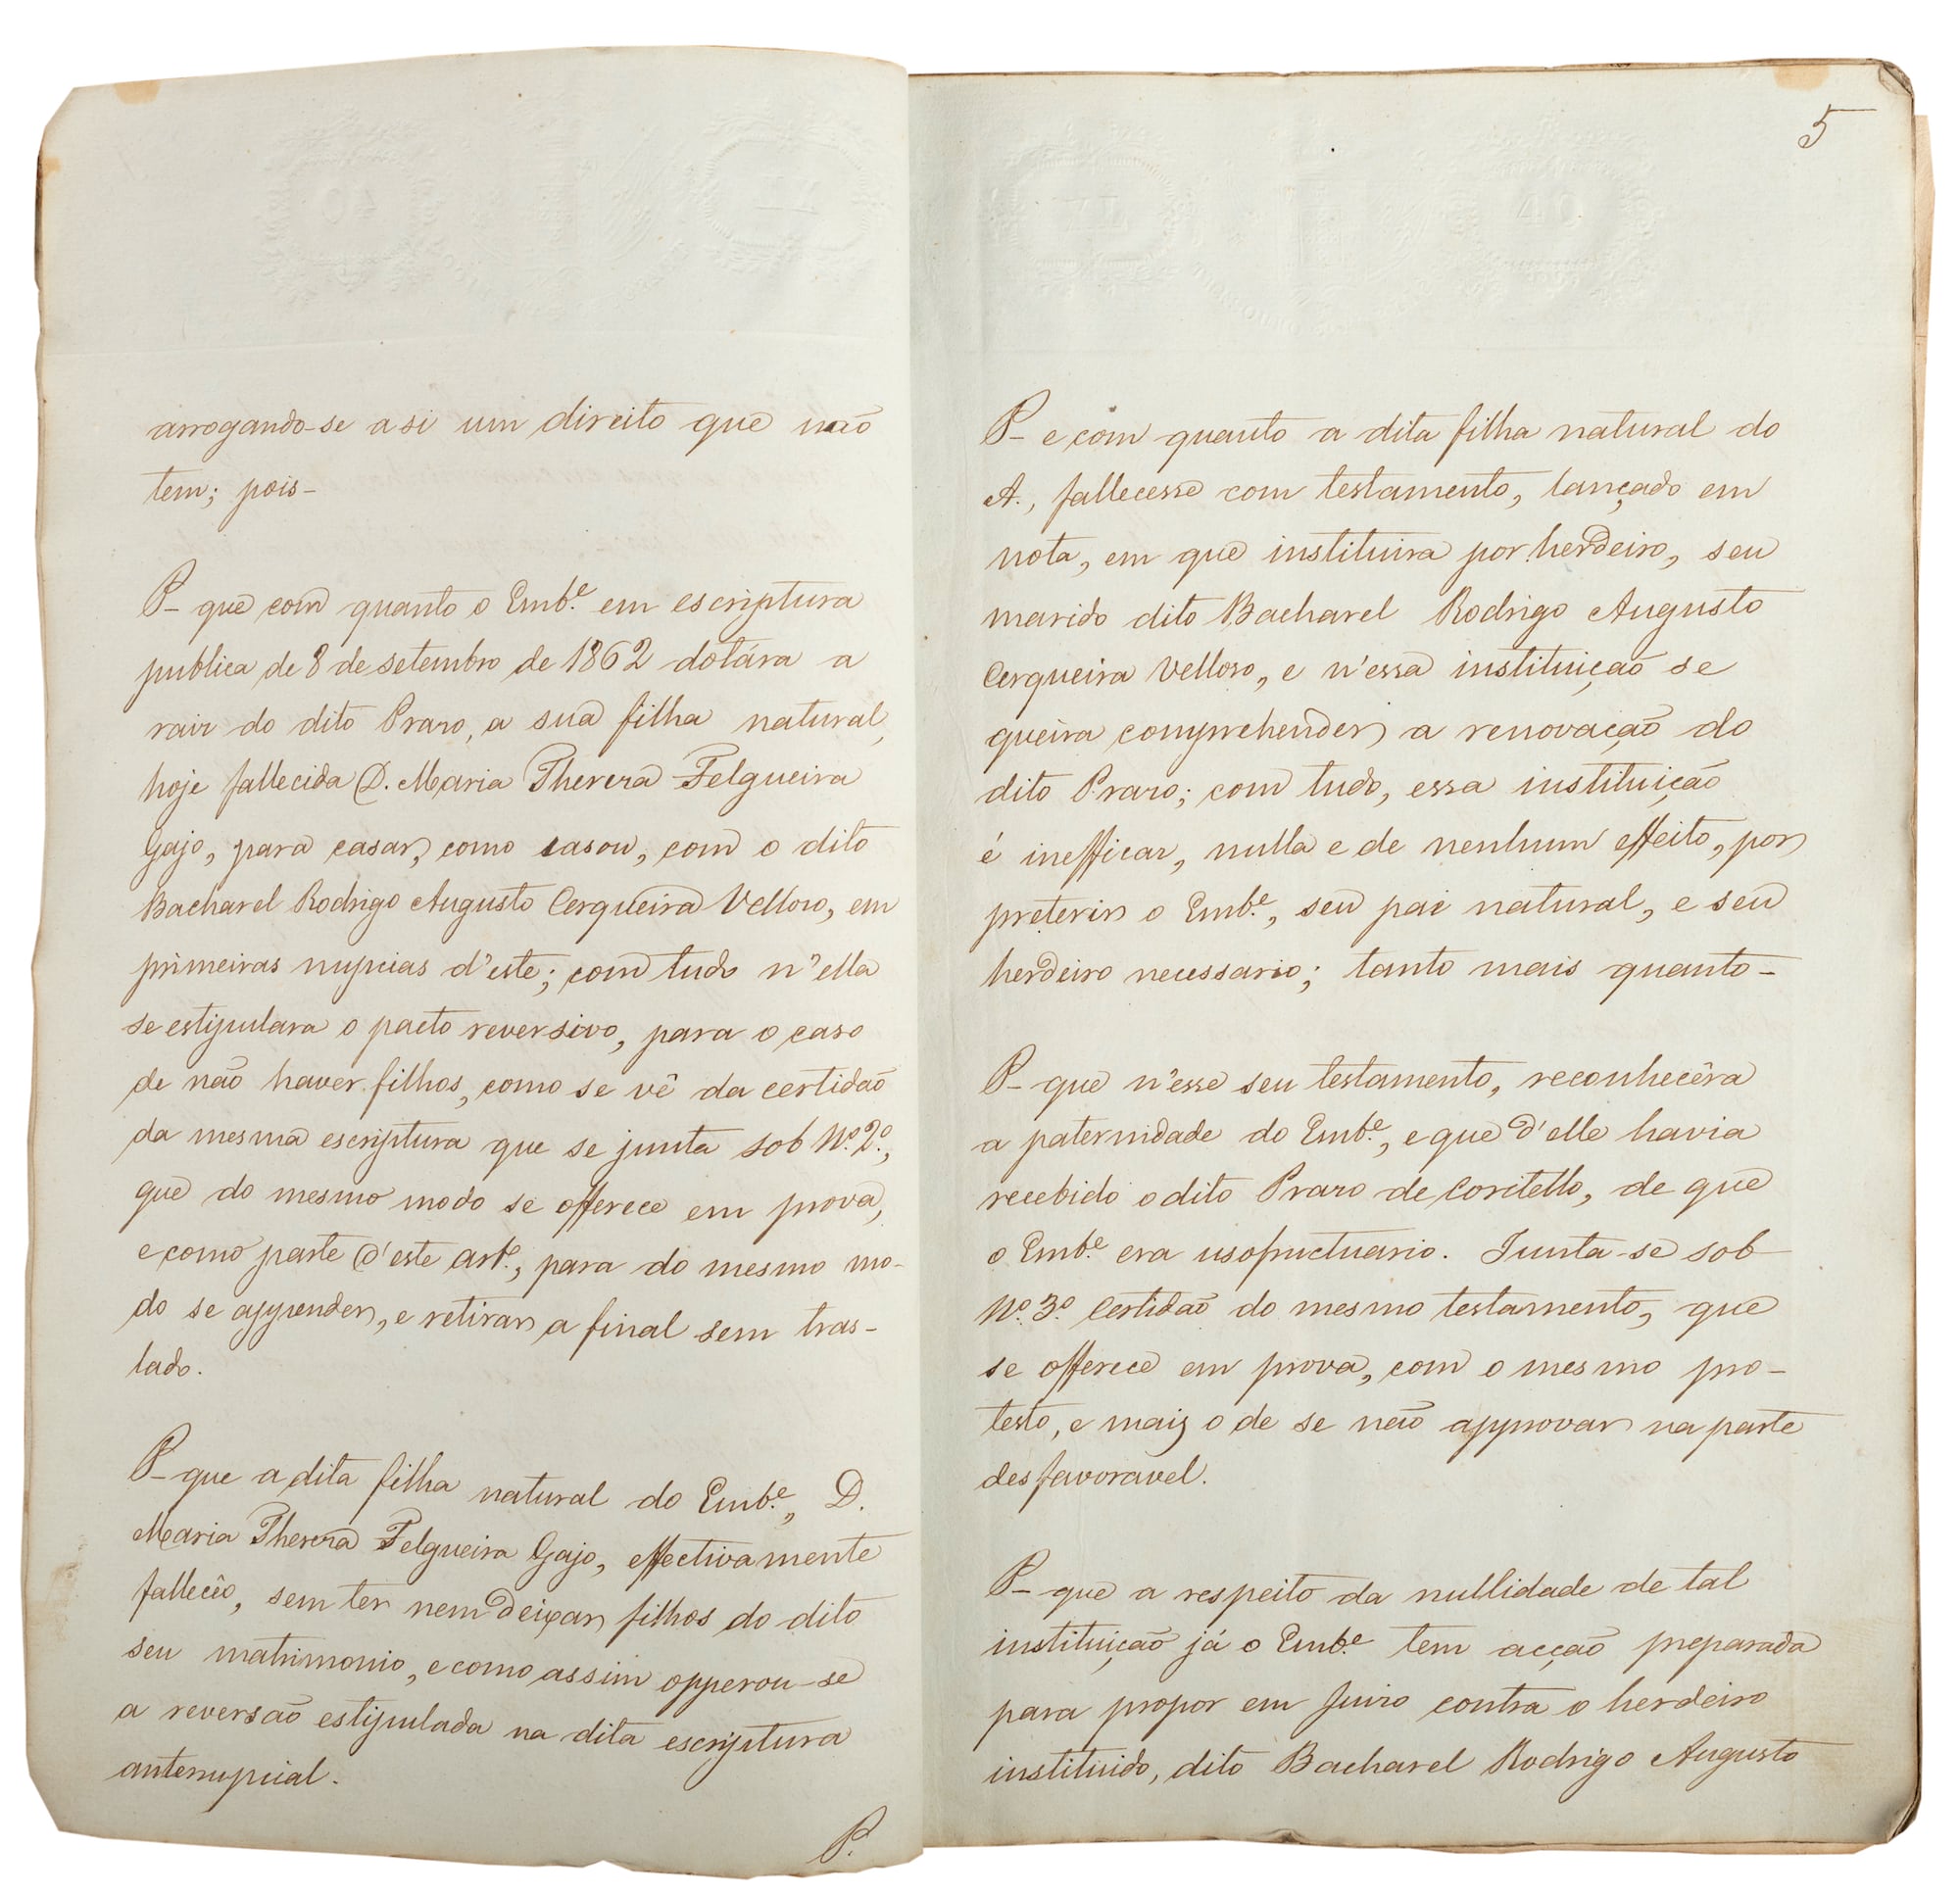 arrogando-se a si um direito que não
tem; pois-
P- que com quanto o Emb.e em escriptura
publica de 8 de setembro de 1862 dotára a
raiz do dito Prazo, a sua filha natural,
hoje fallecida D. Maria Thereza Felgueira
Gajo, para casar, como casou, com o dito
Bacharel Rodrigo Augusto Cerqueira Velloso, em
primeiras nupcias d'este; com tudo n'ella
se estipulara o pacto reversivo, para o caso
de não haver filhos, como se vê da certidão
da mesma escriptura que se junta sob N.o 2.o,
que do mesmo modo se offerece em prova,
e como parte d'este art.o, para do mesmo mo-
do se appender, e retirar a final sem tras-
lado.
P- que a dita filha natural do Emb.e, D.
Maria Thereza Felgueira Gajo, effectivamente
fallecêo, sem ter nem deixar filhos do dito
seu matrimonio, e como assim opperou-se
a reversão estipulada na dita escriptura
antenupcial.
P.
5
P- e com quanto a dita filha natural do
A., fallecesse com testamento, lançado em
nota, em que instituira por herdeiro, seu
marido dito Bacharel Rodrigo Augusto
Cerqueira Velloso, e n'essa instituição se
queira comprehender a renovação do
dito Prazo; com tudo, essa instituição
é inefficaz, nulla e de nenhum effeito, por
preterir o Emb.e, seu pai natural, e seu
herdeiro necessario; tanto mais quanto-
P- que n'esse seu testamento, reconhecêra
a paternidade do Emb.e, e que d'elle havia
recebido o dito Prazo de Coritello, de que
o Emb.e era usofructuario. Junta-se sob
N.o 3.o Certidão do mesmo testamento, que
se offerece em prova, com o mesmo pro-
testo, e mais o de se não approvar na parte
desfavoravel.
P- que a respeito da nullidade de tal
instituição já o Emb.e tem acção preparada
para propor em Juizo contra o herdeiro
instituido, dito Bacharel Rodrigo Augusto